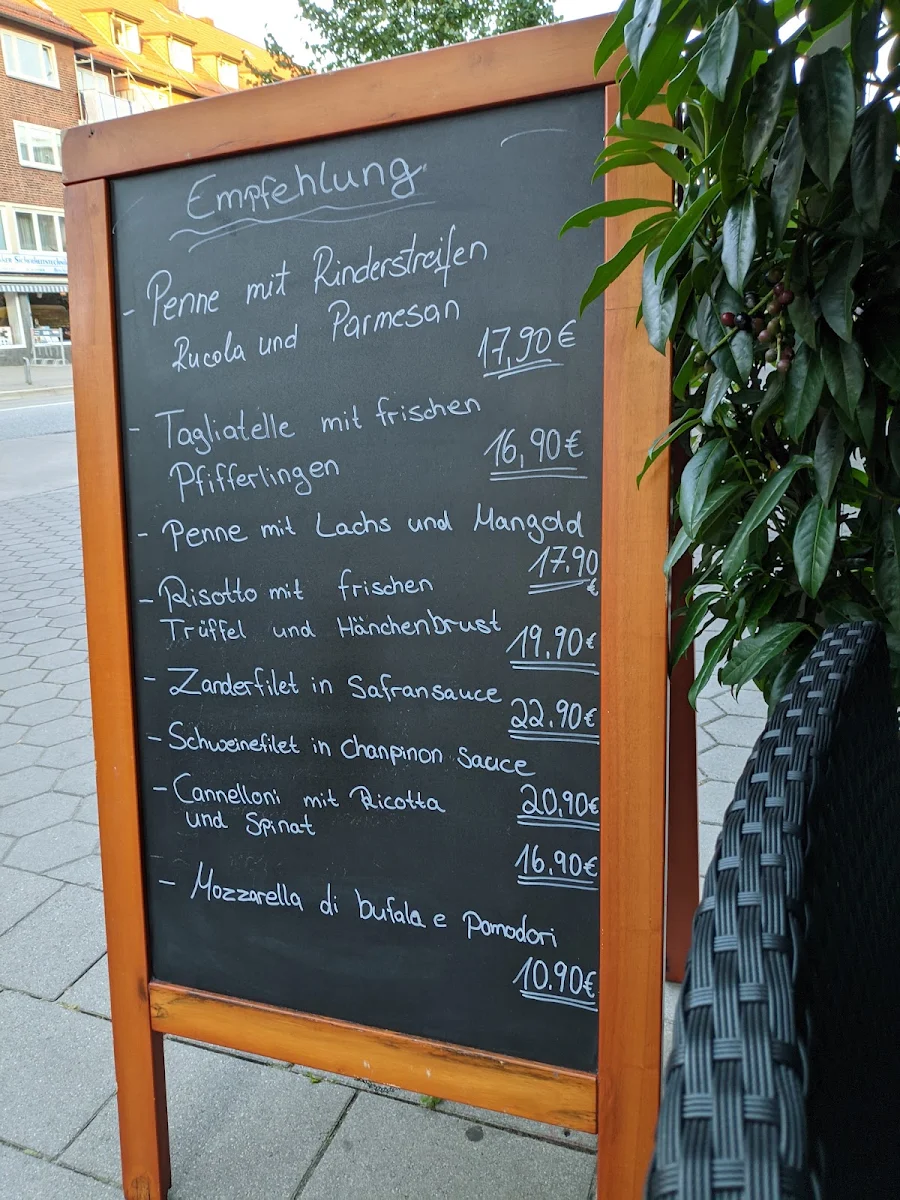 Empfehlung
- Penne mit Rinderstreifen
Rucola und Parmesan
17,90 €
- Tagliatelle mit frischen
Pfifferlingen
16,90 €
- Penne mit Lachs und Mangold
17.90
€
- Risotto mit frischen
Trüffel und Hänchenbrust
19.90€
- Zanderfilet in Safransauce
22.90€
- Schweinefilet in Chanpinon Sauce
20,90€
- Cannelloni mit Ricotta
und Spinat
16.90€
- Mozzarella di bufala e pomodori
10.90€